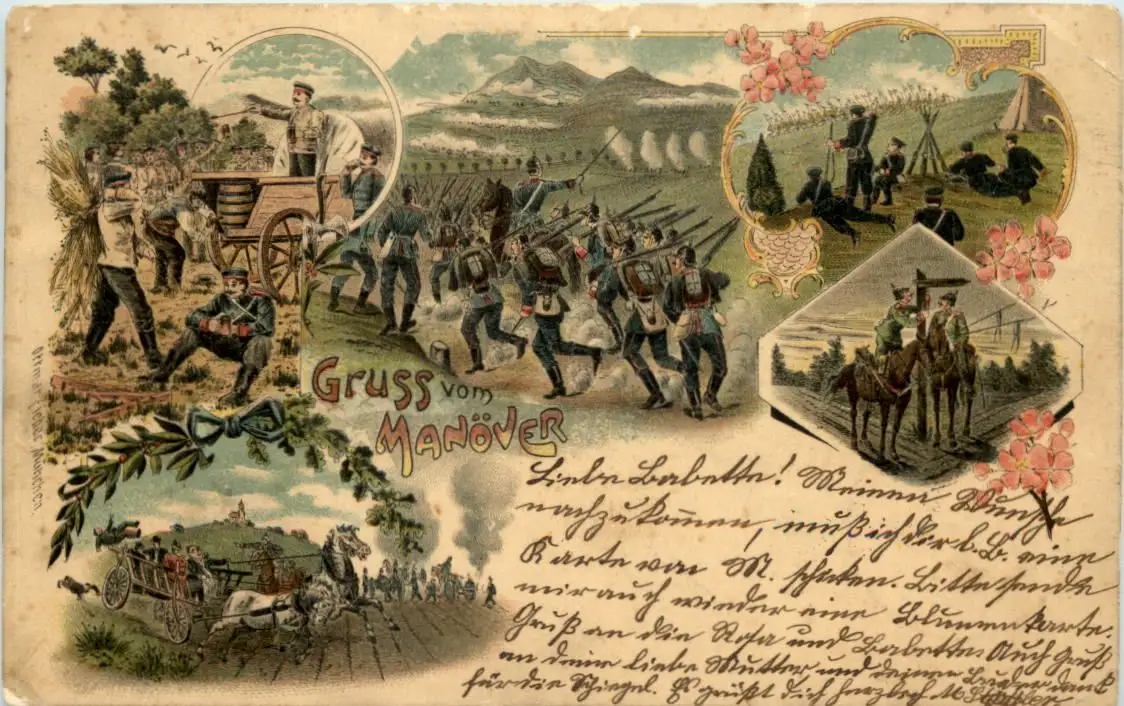 Gruss vom
Manöver
Liebe Babette! Meinem Wunsche
nachzukommen, muß ich der l. B. eine
Karte von M. schicken. Bitte sende
mir auch wieder eine Blumenkarte.
Gruß an die Rosa und Babette. Auch Gruß
an deine liebe Mutter und deinen Bruder dank
für die Spiegel. Es grüßt dich herzlich M.
München.